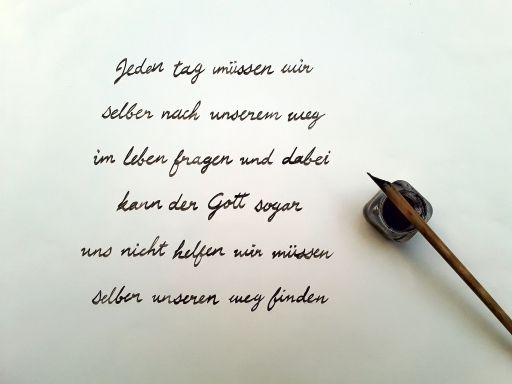 Jeden tag müssen wir
selber nach unserem weg
im leben fragen und dabei
kann der Gott sogar
uns nicht helfen wir müssen
selber unseren weg finden